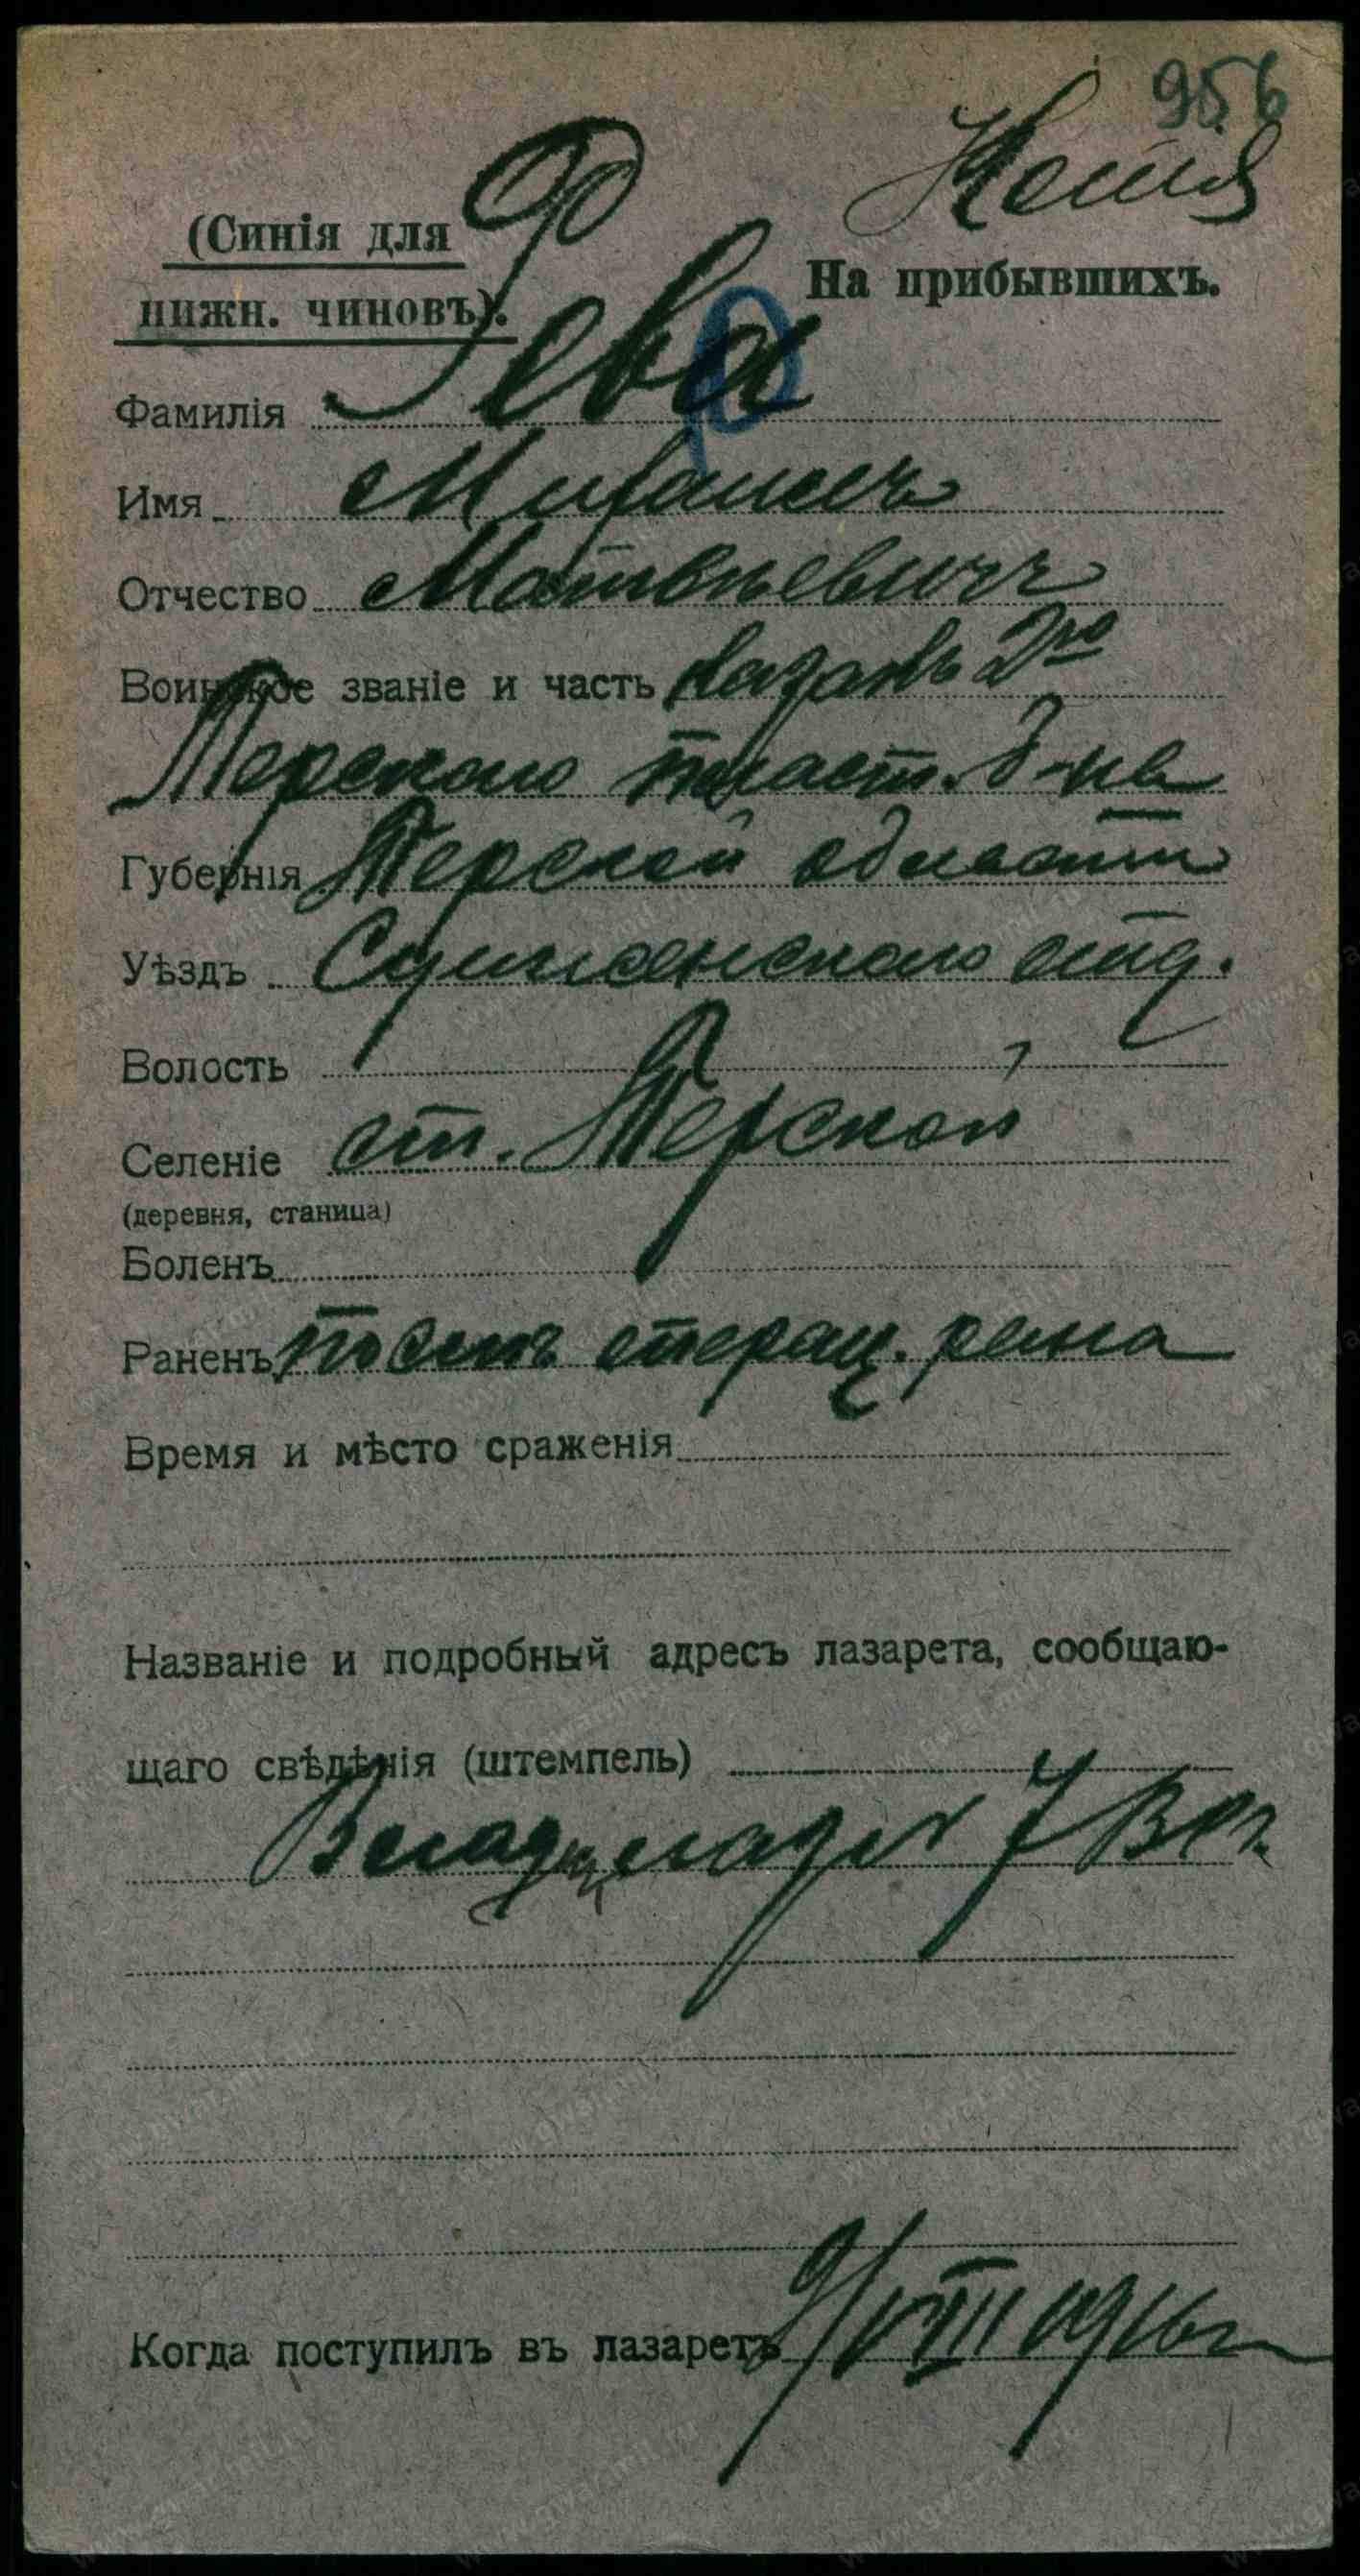 956
(Синія для
нижн. чиновъ).
На прибывшихъ.
Р
Фамилія Рева
Имя Михаилъ
Отчество Матвѣевичъ
Воинское званіе и часть казакъ 2го
Терского пласт. б-на
Губернія Терской области
Уѣздъ Сунженского отд.
Волость
Селеніе ст. Терской
(деревня, станица)
Боленъ
Раненъ послѣ операц. рана
Время и мѣсто сраженія
Названіе и подробный адресъ лазарета, сообщаю-
щаго свѣдѣнія (штемпель)
7
Когда поступилъ въ лазаретъ 9/VIII 1916 г